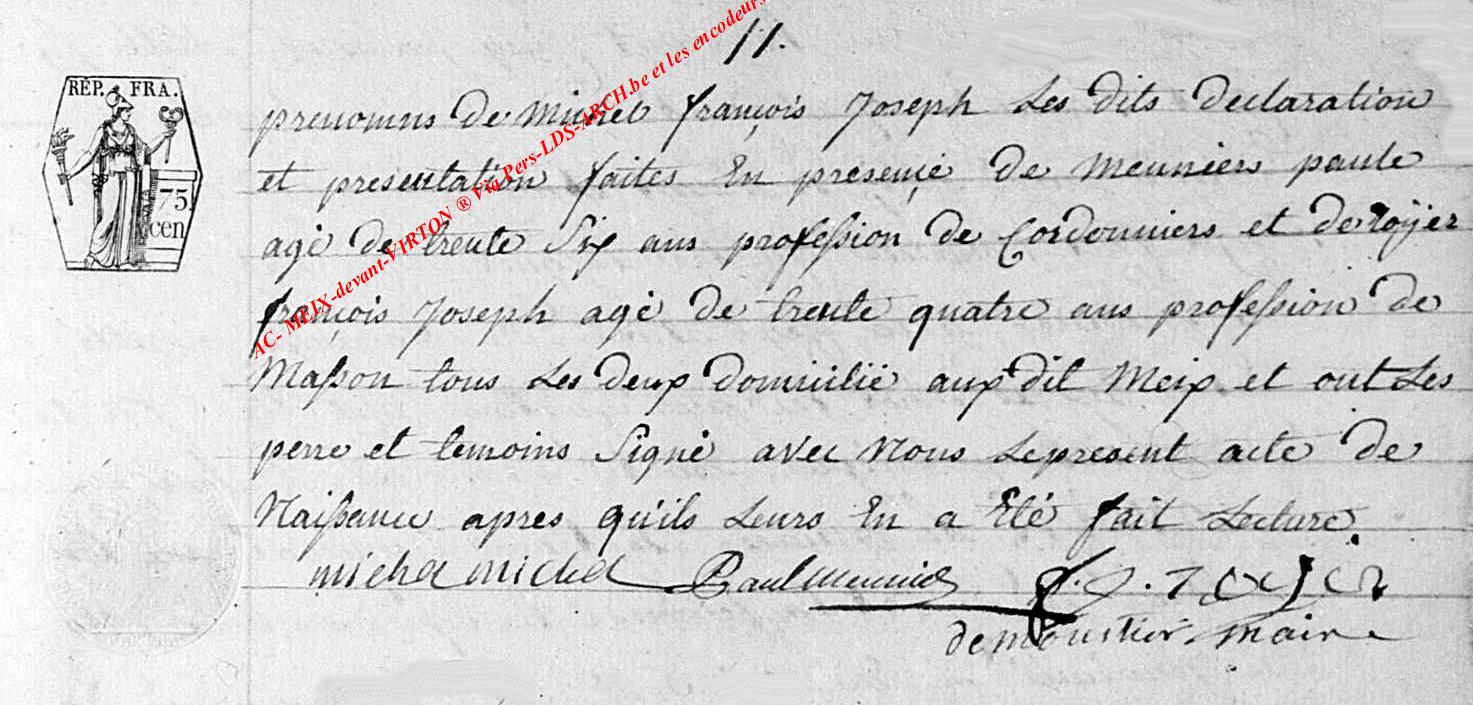 11.
RÉP. FRA.
75
cen
AC- MEIX-devant-VIRTON ® Via Pers-LDS-ARCH.be et les encodeurs
prenomns de Michel françois Joseph Les dits declaration
et presentation faites En presençe de meuniers paule
agé de trente Six ans profession de Cordonniers et de royer
françois Joseph agé de trente quatre ans profession de
Masson tous Les deux domicilié aux dit Meix et ont Les
perre et temoins Signé avec Nous Le present acte de
Naissance apres qu'ils Leurs En a Eté fait Lecture
michel michel Paul Meunier f. J. royer
demoustier maire